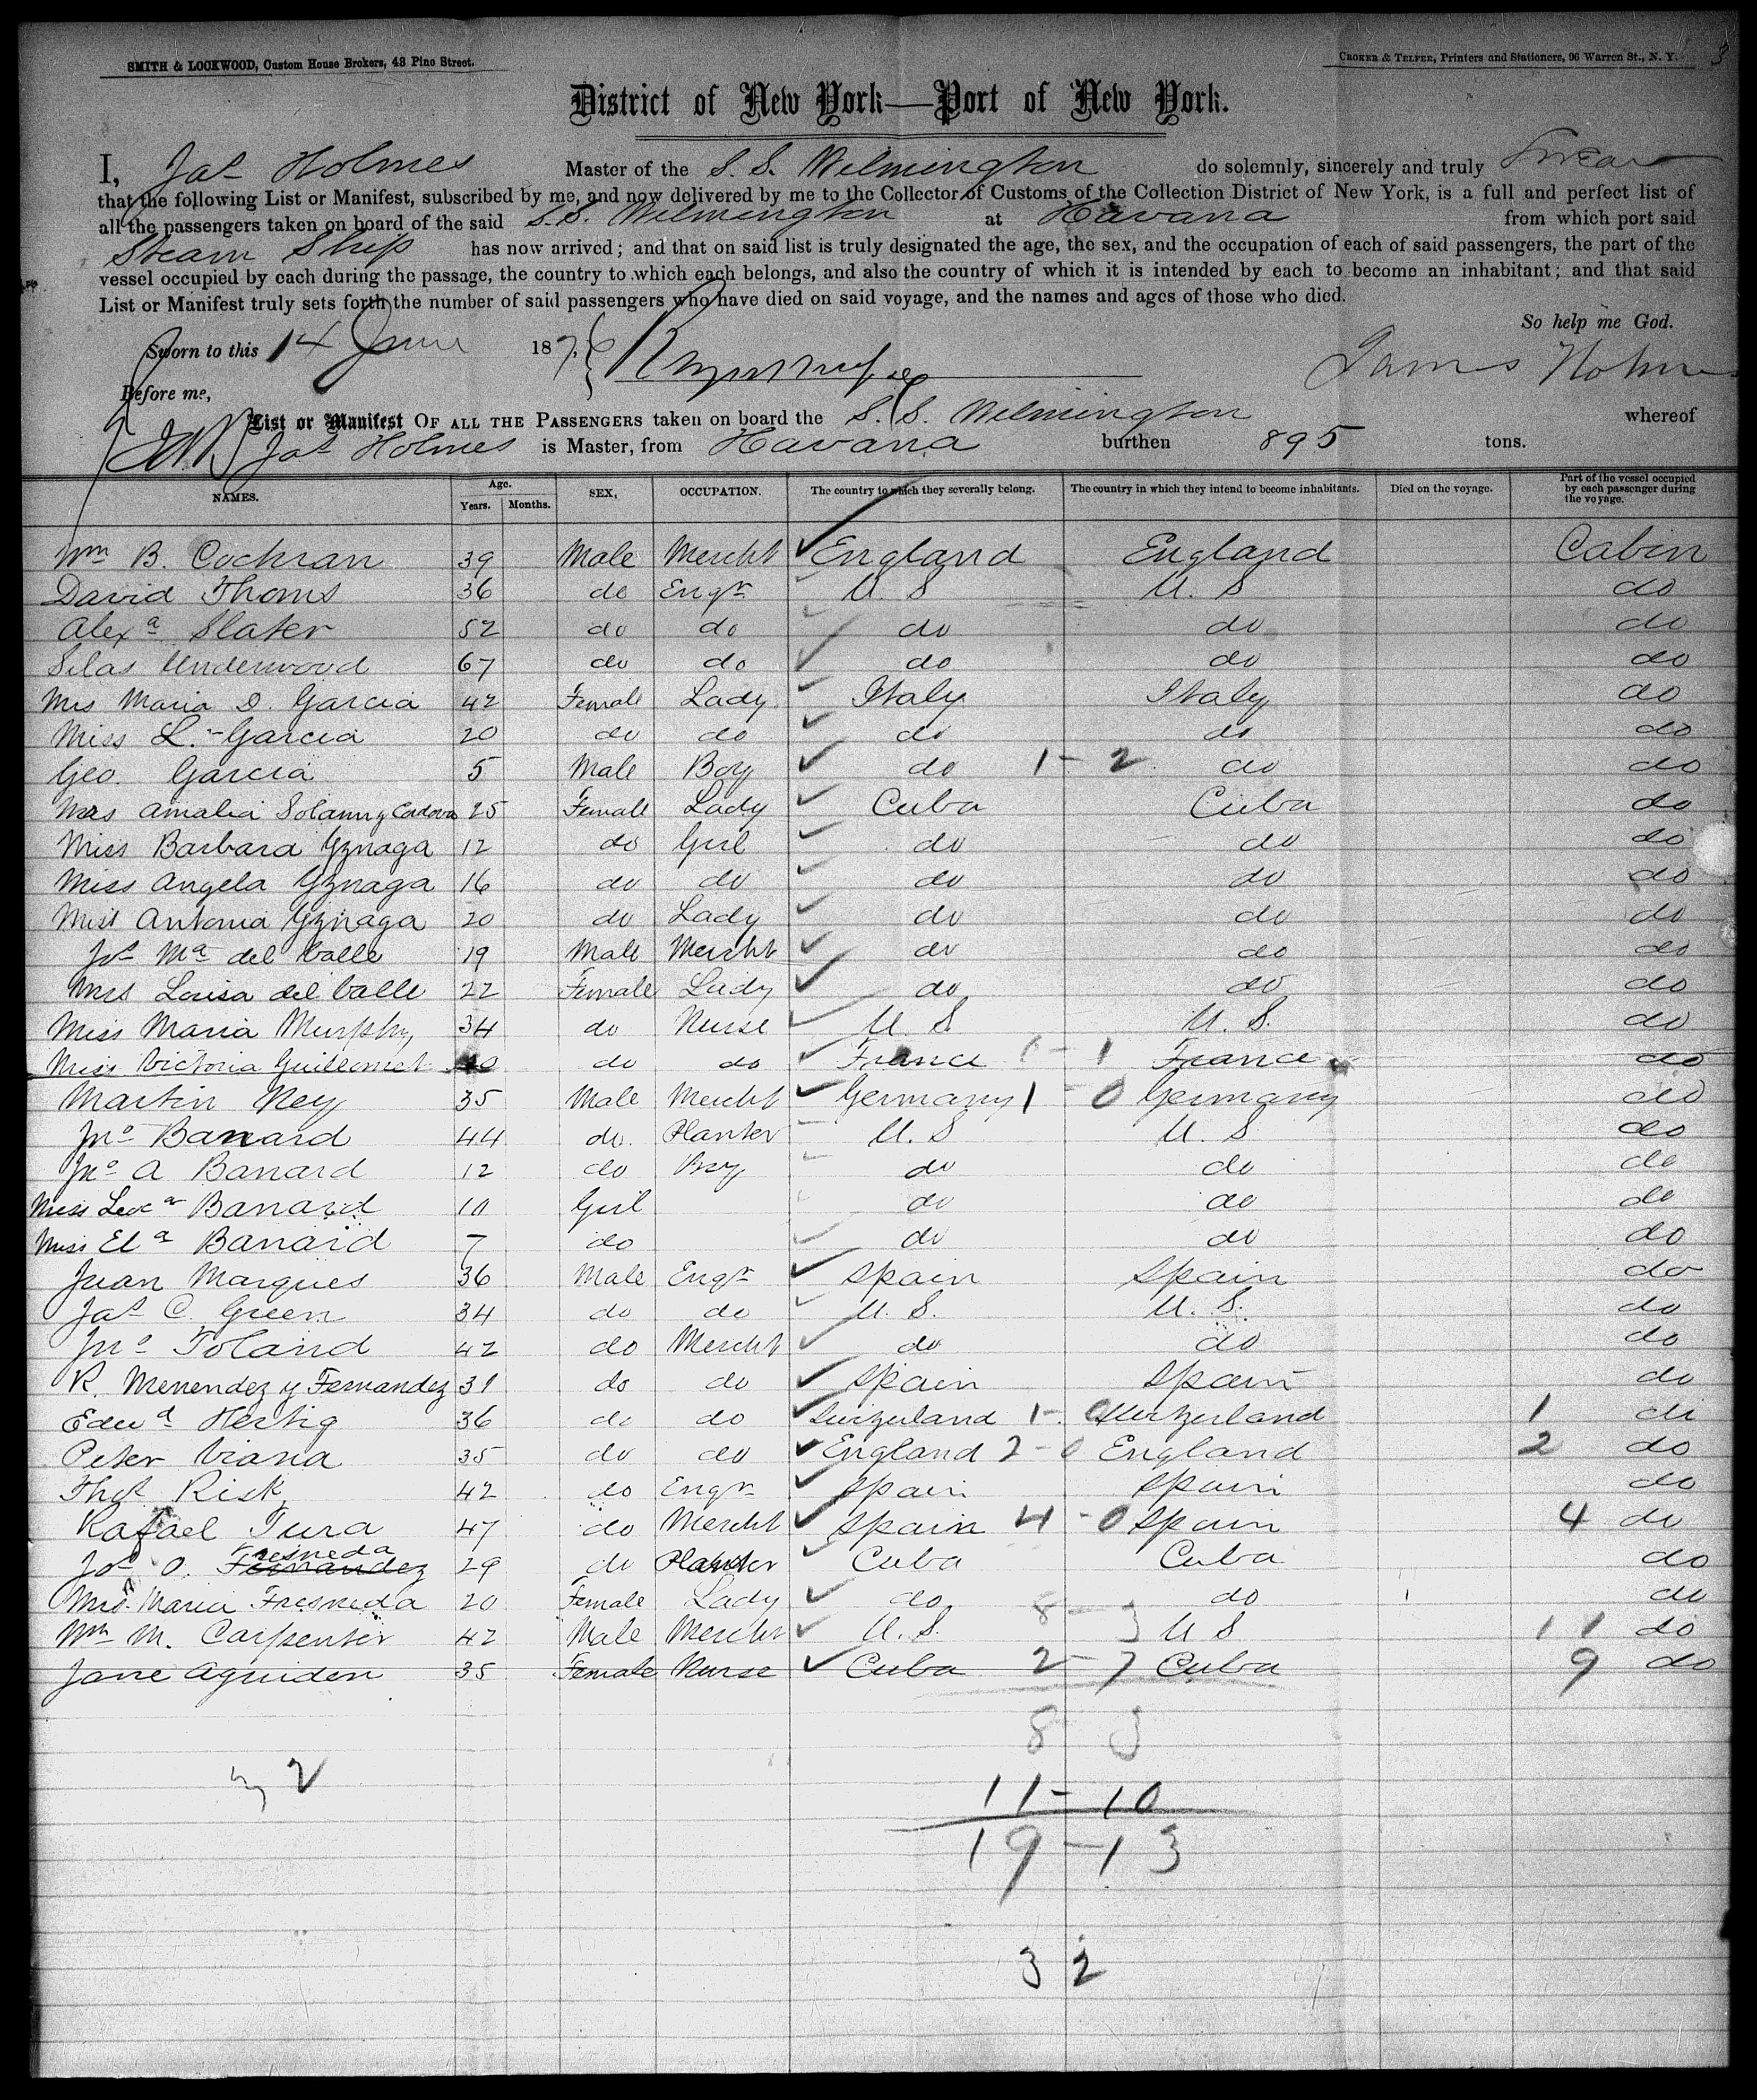 SMITH & LOCKWOOD, Custom House Brokers, 48 Pine Street.
CROKER & TELFER, Printers and Stationers, 96 Warren St., N. Y.
3
District of New York—Port of New York.
I, Jas Holmes Master of the S. S. Wilmington do solemnly, sincerely and truly Swear
that the following List or Manifest, subscribed by me, and now delivered by me to the Collector of Customs of the Collection District of New York, is a full and perfect list of
all the passengers taken on board of the said S.S. Wilmington at Havana from which port said
Steam Ship has now arrived; and that on said list is truly designated the age, the sex, and the occupation of each of said passengers, the part of the
vessel occupied by each during the passage, the country to which each belongs, and also the country of which it is intended by each to become an inhabitant; and that said
List or Manifest truly sets forth the number of said passengers who have died on said voyage, and the names and ages of those who died.
So help me God.
Sworn to this 14 June 1876
James Holmes
Before me,
List or Manifest OF ALL THE PASSENGERS taken on board the S. S. Wilmington whereof
Jas Holmes is Master, from Havana burthen 895 tons.
NAMES. Age. Years. Months. SEX, OCCUPATION. The country to which they severally belong. The country in which they intend to become inhabitants. Died on the voyage. Part of the vessel occupied by each passenger during the voyage.
Wm B. Cochran 39 Male Mercht England England Cabin
David Thoms 36 do Engr U. S U. S do
Alexa Slater 52 do do do do do
Silas Underwood 67 do do do do do
Mrs Maria D. Garcia 42 Female Lady Italy Italy do
Miss L. Garcia 20 do do do do do
Geo. Garcia 5 Male Boy do 1 - 2 do do
Mrs Amalia y Cordova 25 Female Lady Cuba Cuba do
Miss Barbara Yznaga 12 do Girl do do do
Miss Angela Yznaga 16 do do do do do
Miss Antonia Yznaga 20 do Lady do do do
Js Ma del Valle 19 Male Mercht do do do
Mrs Louisa del Valle 22 Female Lady do do do
Miss Maria Murphy 34 do Nurse U. S. U. S. do
Miss Victoria Guillomet do do France 1 - 1 France do
Martin Ney 35 Male Mercht Germany 1 - 0 Germany do
Jno Banard 44 do. Planter U. S U. S do
Jno A Banard 12 do Boy do do do
Miss Banard 10 Girl do do do
Miss Ela Banard 7 do do do do
Juan Marques 36 Male Engr Spain Spain do
Jas C. Green 34 do do U. S. U. S. do
Jno Toland 42 do Mercht do do do
R. Menendez y Fernandez 31 do do Spain Spain do
Edwd Hertig 36 do do Switzerland 1 - 0 Switzerland 1 do
Peter Viana 35 do do England 2 - 0 England 2 do
Thos Risk 42 do Engr Spain Spain do
Rafael Tura 47 do Mercht Spain 4 - 0 Spain 4 do
Jos O. Fernandez Fresneda 29 do Planter Cuba Cuba do
Mrs. Maria Fresneda 20 Female Lady do do do
Wm M. Carpenter 42 Male Mercht U. S. 8 - 3 U S 11 do
Jane Aguiden 35 Female Nurse Cuba 2 - 7 Cuba 9 do
8 3
32
11 - 10
19 - 13
32